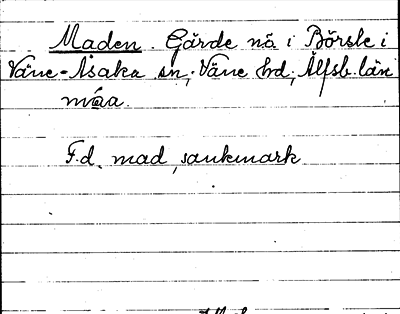 Maden. Gärde nä i Börsle i
Väne-Åsaka sn, Väne hd, Älfsb. län
máa.
F.d. mad, sankmark